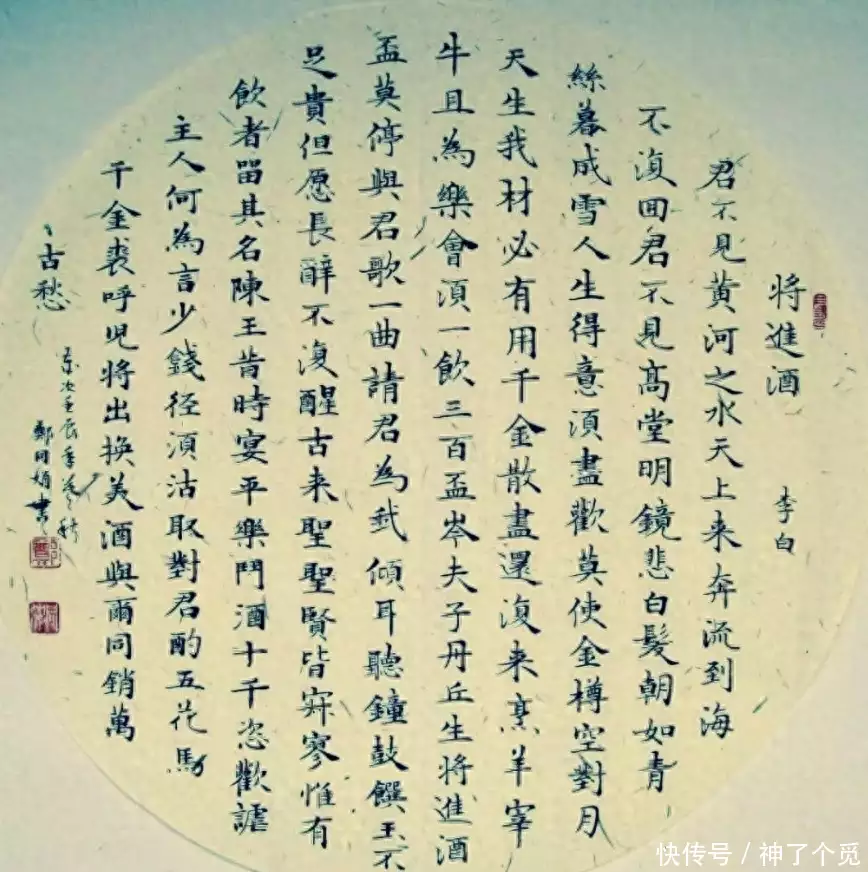 將進酒 李白
君不見黃河之水天上来奔流到海
不復回君不見髙堂明鏡悲白髮朝如青
絲暮成雪人生得意須盡歡莫使金樽空對月
天生我材必有用千金散盡還復来烹羊宰
牛且為樂會須一飲三百盃岑夫子丹丘生將進酒
盃莫停與君歌一曲請君為我傾耳聽鐘鼓饌玉不
足貴但愿長醉不復醒古来聖聖賢皆寂寥惟有
飲者留其名陳王昔時宴平樂鬥酒十千恣歡謔
主人何為言少錢径須沽取對君酌五花馬
千金裘呼児將出換美酒與爾同銷萬
、古愁
次壬辰年秋
鄭同娟書
快传号 / 神了个觅